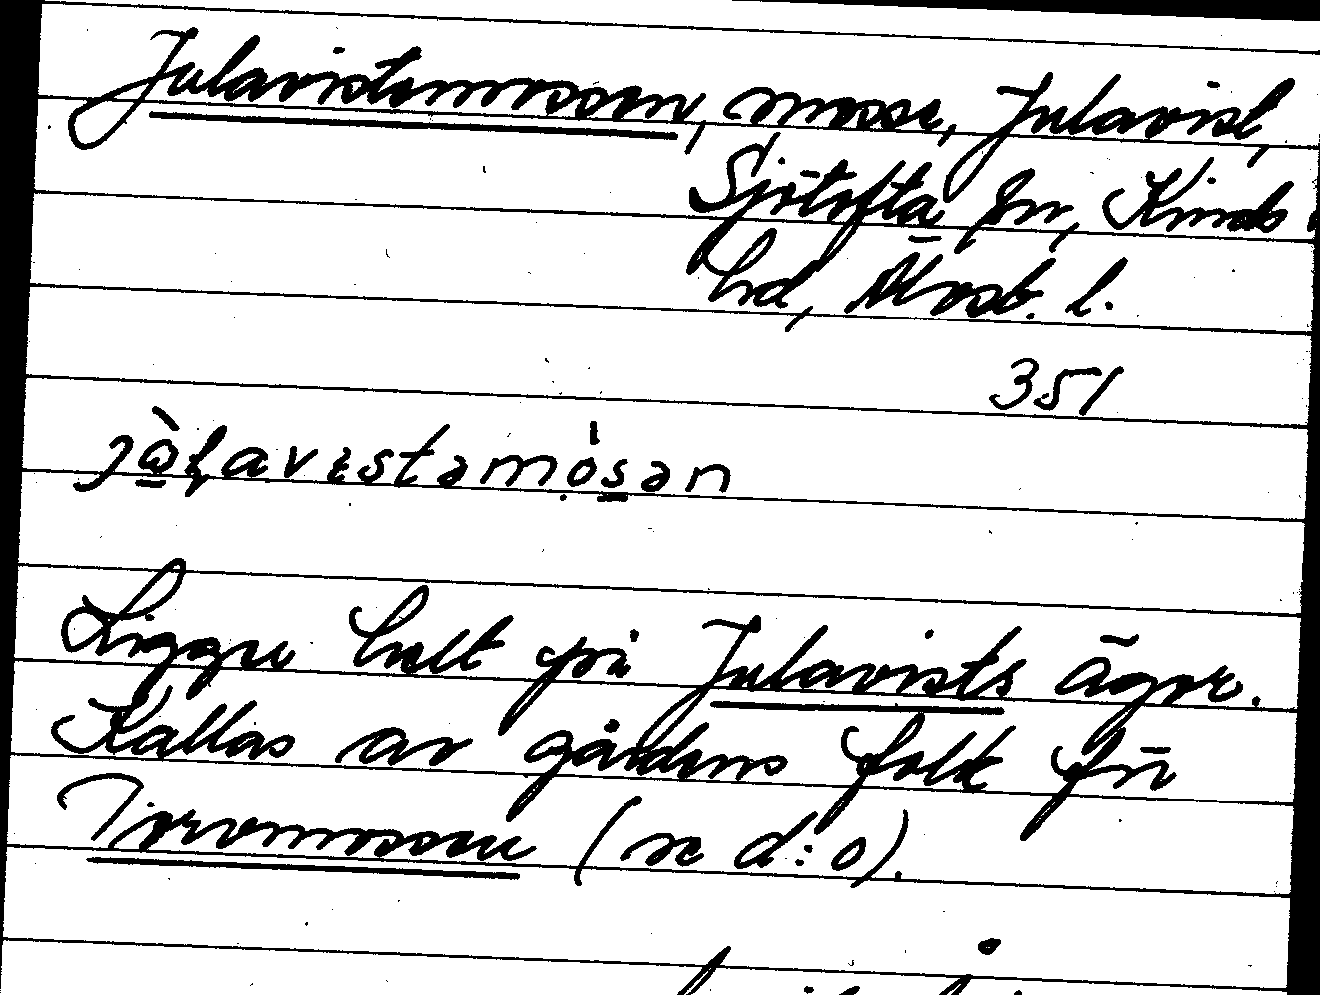 Julavistemossen, mosse, Julavist,
Sjötofta sn, Kinds
hd, Älvsb. l.
351
Ligger helt på Julavists ägor.
Kallas av gårdens folk för
Torvmossen (se d:o).